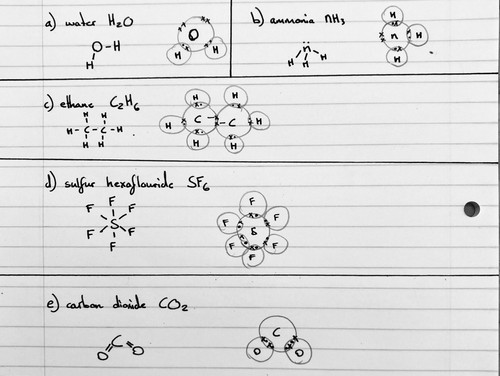 a) water H2O
O-H
H
O
H H
b) ammonia nH3
n
H H H
H
n H
H
c) ethane C2H6
H H
H-C-C-H
H H
H H
H C-C H
H H
d) sulfur hexaflouride SF6
F F F
S
F F F
F
F F
S
F F
F
e) carbon dioxide CO2
C
O O
C
O O